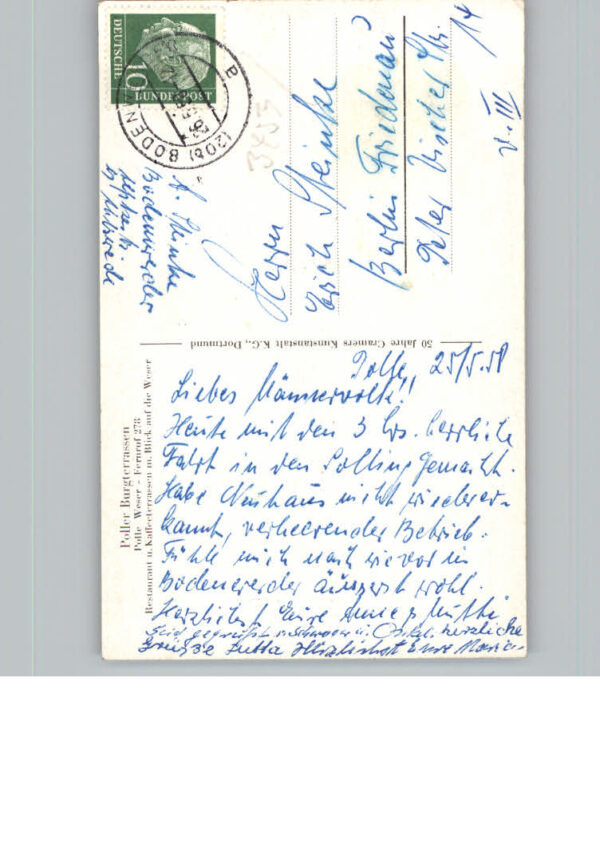 DEUTSCHE
BUNDESPOST
10
(20b) BODENW
3453
Herrn
Erich Steinke
Berlin Friedenau
Peter Vischer Str. 14
v. III
A. Steinke
Bodenwerder
50 Jahre Cramers Kunstanstalt K.G., Dortmund
Poller Burgterrassen
Polle Weser - Fernruf 278
Restaurant u. Kaffeeterrassen m. Blick auf die Weser
Polle, 25/5.58
Liebes Männervolk!!
Heute mit den 3 herrliche
Fahrt in den Solling gemacht.
Habe Neuhaus nicht wiederer-
kannt, verheerender Betrieb.
Fühle mich nach wie vor in
Bodenwerder äusserst wohl.
Herzlichst Eure Mutti
Seid gegrüßt v. herzliche
Grüsse Jutta Herzlichst Eure Maria